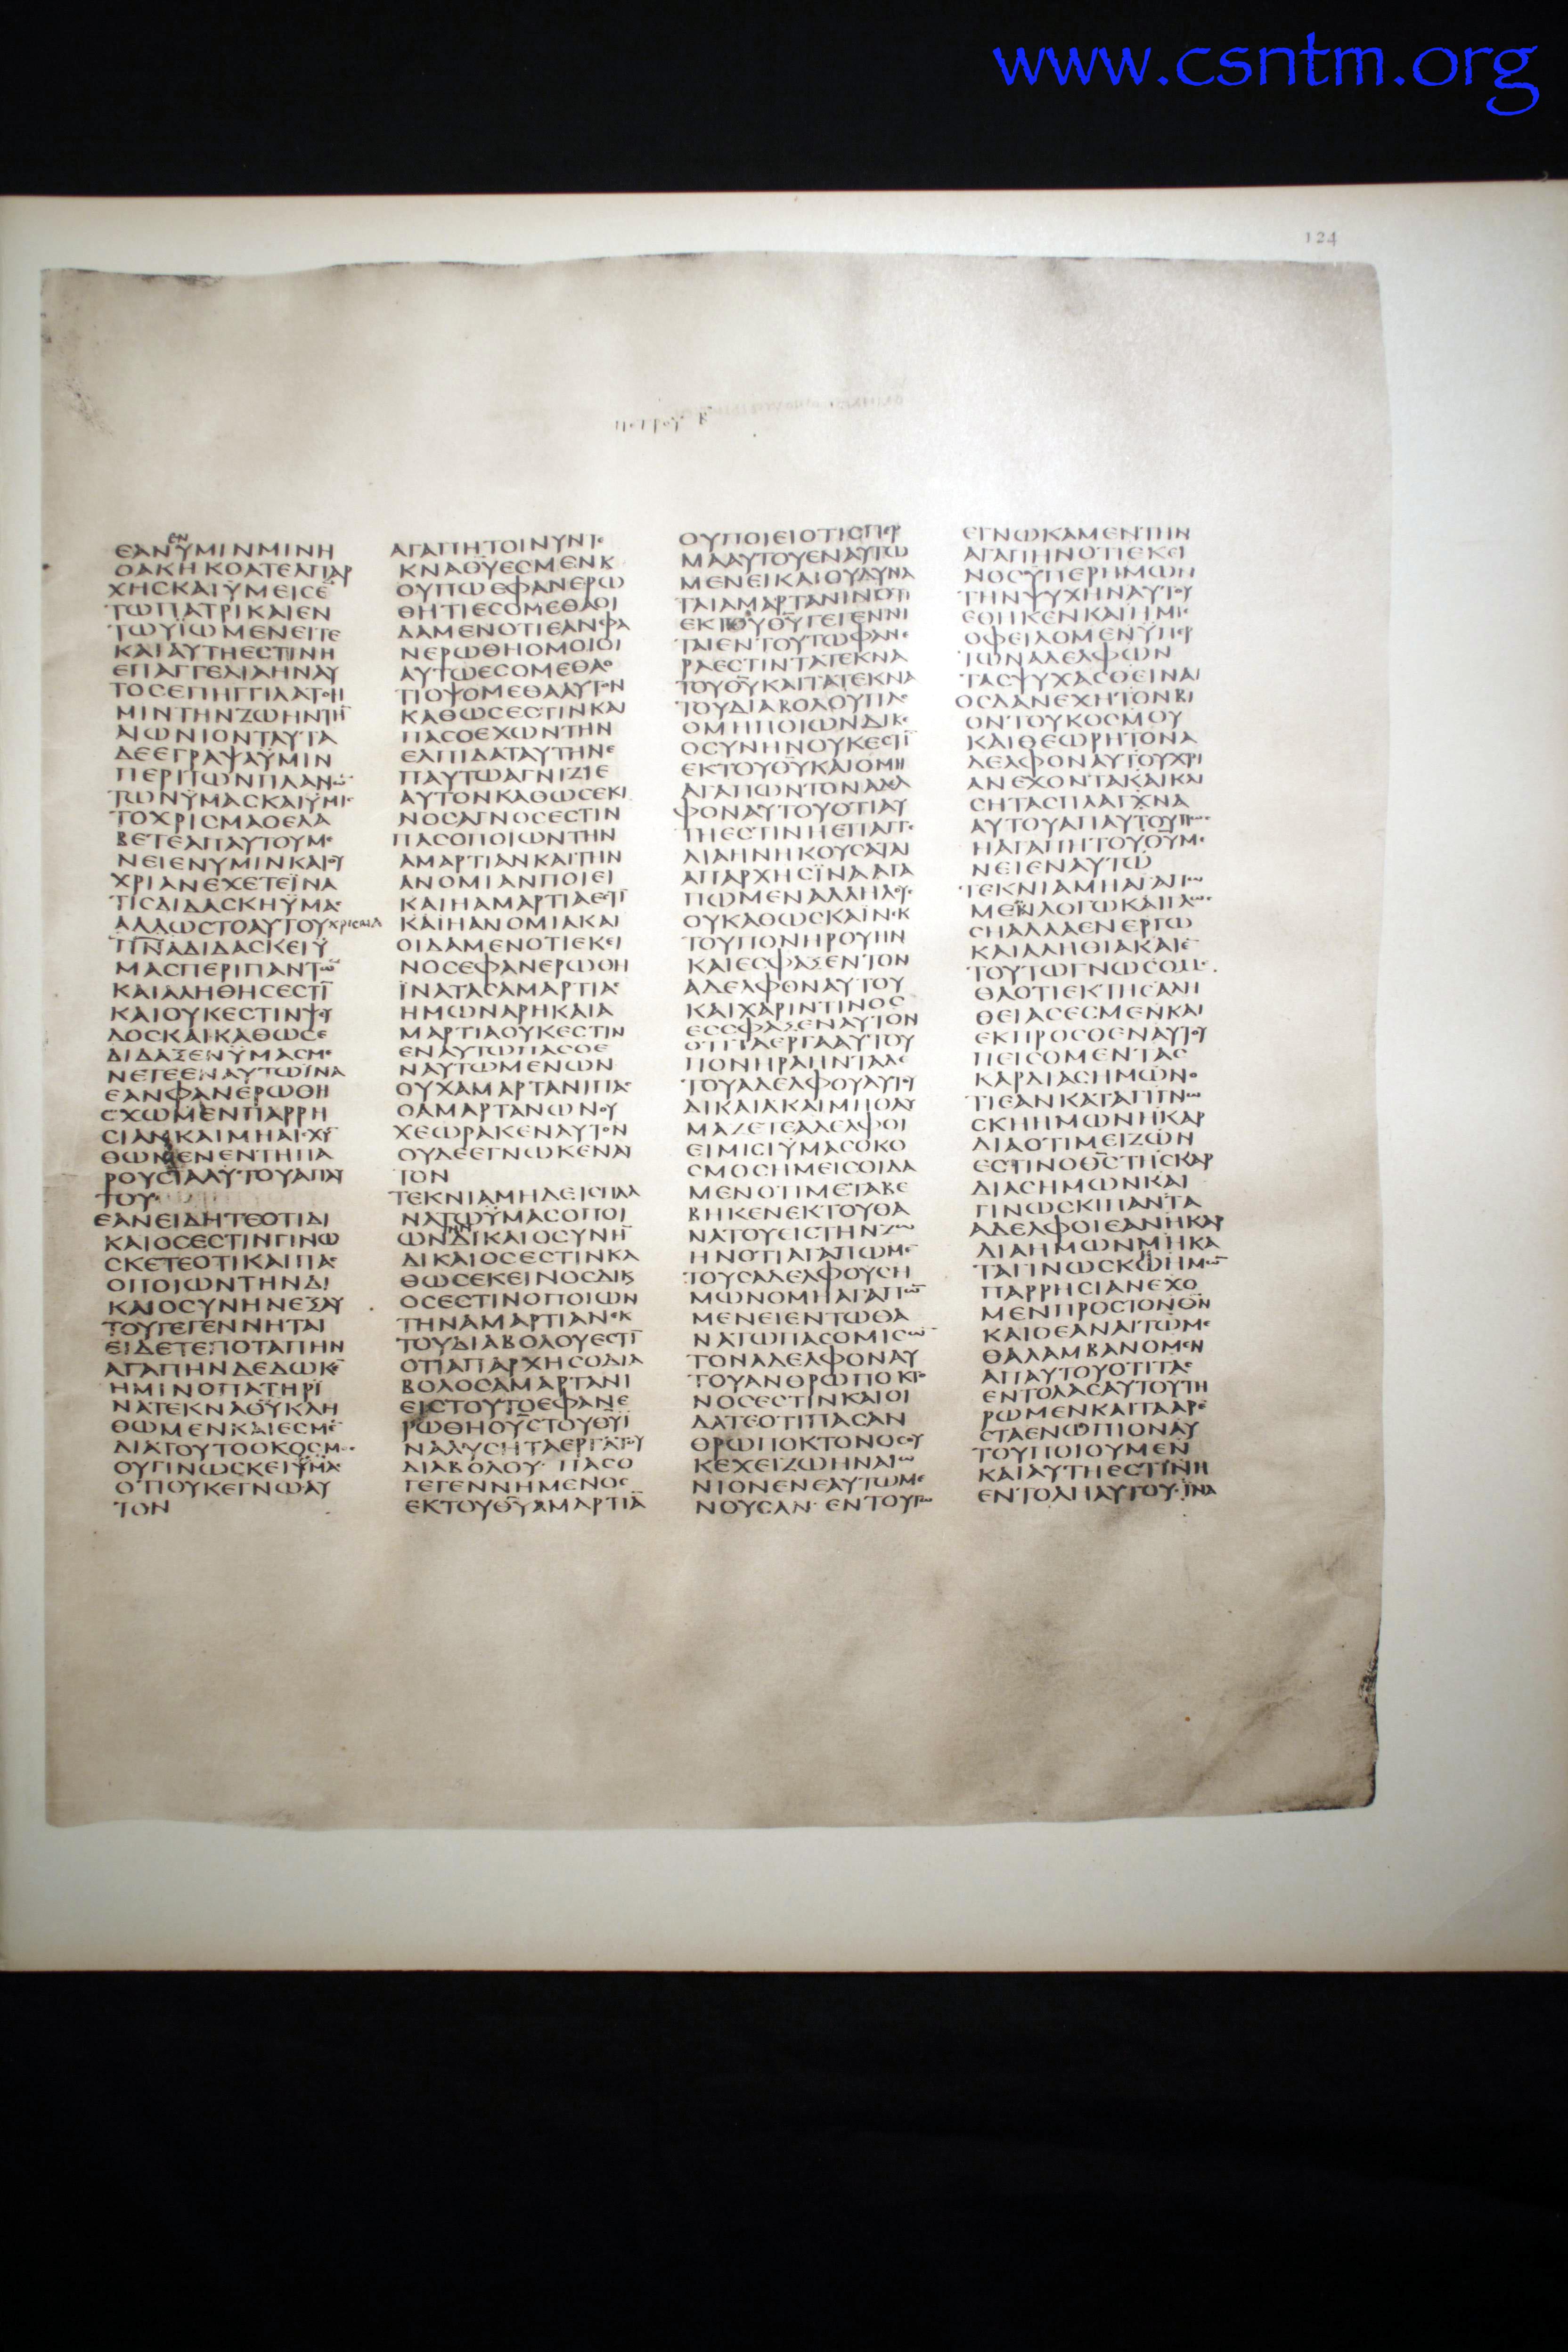 www.csntm.org
124
ΕΑΝΫΜΙΝΜΙΝΗ
ΟΑΚΗΚΟΑΤΕΑΠΑΡ
ΧΗϹΚΑΙΫΜΕΙϹΕ
ΤΩΠΑΤΡΙΚΑΙΕΝ
ΤΩΥΪΩΜΕΝΕΙΤΕ
ΚΑΙΑΥΤΗΕϹΤΙΝΗ
ΕΠΑΓΓΕΛΙΑΗΝΑΥ
ΤΟϹΕΠΗΓΓΙΛΑΤΟΗ
ΜΙΝΤΗΝΖΩΗΝΤΗ̅
ΑΙΩΝΙΟΝΤΑΥΤΑ
ΔΕΕΓΡΑΨΑΫΜΙΝ
ΠΕΡΙΤΩΝΠΛΑΝΩ̅
ΤΩΝΫΜΑϹΚΑΙΫΜΙϹ
ΤΟΧΡΙϹΜΑΟΕΛΑ
ΒΕΤΕΑΠΑΥΤΟΥΜΕ
ΝΕΙΕΝΥΜΙΝΚΑΙΟΥ
ΧΡΙΑΝΕΧΕΤΕΪΝΑ
ΤΙϹΔΙΔΑϹΚΗΫΜΑϹ
ΑΛΛΩϹΤΟΑΥΤΟΥΧΡΙϹΜΑ
ΠΝ̅ΑΔΙΔΑϹΚΕΙΫ
ΜΑϹΠΕΡΙΠΑΝΤΩ̅
ΚΑΙΑΛΗΘΗϹΕϹΤΙ̅
ΚΑΙΟΥΚΕϹΤΙΝΨΕΥ
ΔΟϹΚΑΙΚΑΘΩϹΕ
ΔΙΔΑΞΕΝΫΜΑϹΜΕ
ΝΕΤΕΕΝΑΥΤΩΪΝΑ
ΕΑΝΦΑΝΕΡΩΘΗ
ϹΧΩΜΕΝΠΑΡΡΗ
ϹΙΑΝΚΑΙΜΗΑΙϹΧΥ̅
ΘΩΜΕΝΕΝΤΗΠΑ
ΡΟΥϹΙΑΑΥΤΟΥΑΠΑΥ
ΤΟΥ
ΕΑΝΕΙΔΗΤΕΟΤΙΔΙ
ΚΑΙΟϹΕϹΤΙΝΓΙΝΩ
ϹΚΕΤΕΟΤΙΚΑΙΠΑϹ
ΟΠΟΙΩΝΤΗΝΔΙ
ΚΑΙΟϹΥΝΗΝΕΞΑΥ
ΤΟΥΓΕΓΕΝΝΗΤΑΙ
ΕΙΔΕΤΕΠΟΤΑΠΗΝ
ΑΓΑΠΗΝΔΕΔΩΚΕ̅
ΗΜΙΝΟΠΑΤΗΡΪ
ΝΑΤΕΚΝΑΘ̅Υ̅ΚΛΗ
ΘΩΜΕΝΚΑΙΕϹΜΕ̅
ΔΙΑΤΟΥΤΟΟΚΟϹΜΟϹ
ΟΥΓΙΝΩϹΚΕΙΫΜΑϹ
ΟΤΙΟΥΚΕΓΝΩΑΥ
ΤΟΝ
ΑΓΑΠΗΤΟΙΝΥΝΤΕ
ΚΝΑΘ̅Υ̅ΕϹΜΕΝΚ
ΟΥΠΩΕΦΑΝΕΡΩ
ΘΗΤΙΕϹΟΜΕΘΑΟΙ
ΔΑΜΕΝΟΤΙΕΑΝΦΑ
ΝΕΡΩΘΗΟΜΟΙΟΙ
ΑΥΤΩΕϹΟΜΕΘΑΟ
ΤΙΟΨΟΜΕΘΑΑΥΤΟΝ
ΚΑΘΩϹΕϹΤΙΝΚΑΙ
ΠΑϹΟΕΧΩΝΤΗΝ
ΕΛΠΙΔΑΤΑΥΤΗΝΕ
ΠΑΥΤΩΑΓΝΙΖΙΕ
ΑΥΤΟΝΚΑΘΩϹΕΚΙ
ΝΟϹΑΓΝΟϹΕϹΤΙΝ
ΠΑϹΟΠΟΙΩΝΤΗΝ
ΑΜΑΡΤΙΑΝΚΑΙΤΗΝ
ΑΝΟΜΙΑΝΠΟΙΕΙ
ΚΑΙΗΑΜΑΡΤΙΑΕϹΤΙ̅
ΚΑΙΗΑΝΟΜΙΑΚΑΙ
ΟΙΔΑΜΕΝΟΤΙΕΚΕΙ
ΝΟϹΕΦΑΝΕΡΩΘΗ
ΪΝΑΤΑϹΑΜΑΡΤΙΑϹ
ΗΜΩΝΑΡΗΚΑΙΑ
ΜΑΡΤΙΑΟΥΚΕϹΤΙΝ
ΕΝΑΥΤΩΠΑϹΟΕ
ΝΑΥΤΩΜΕΝΩΝ
ΟΥΧΑΜΑΡΤΑΝΙΠΑϹ
ΟΑΜΑΡΤΑΝΩΝΟΥ
ΧΕΩΡΑΚΕΝΑΥΤΟΝ
ΟΥΔΕΕΓΝΩΚΕΝΑΥ
ΤΟΝ
ΤΕΚΝΙΑΜΗΔΕΙϹΠΛΑ
ΝΑΤΩΫΜΑϹΟΠΟΙ
ΩΝΔΙΚΑΙΟϹΥΝΗ̅
ΔΙΚΑΙΟϹΕϹΤΙΝΚΑ
ΘΩϹΕΚΕΙΝΟϹΔΙΚΑΙ
ΟϹΕϹΤΙΝΟΠΟΙΩΝ
ΤΗΝΑΜΑΡΤΙΑΝΕΚ
ΤΟΥΔΙΑΒΟΛΟΥΕϹΤΙ̅
ΟΤΙΑΠΑΡΧΗϹΟΔΙΑ
ΒΟΛΟϹΑΜΑΡΤΑΝΙ
ΕΙϹΤΟΥΤΟΕΦΑΝΕ
ΡΩΘΗΟΥ̅ϹΤΟΥΘ̅Υ̅Ϊ
ΝΑΛΥϹΗΤΑΕΡΓΑΤΟΥ
ΔΙΑΒΟΛΟΥ·ΠΑϹΟ
ΓΕΓΕΝΝΗΜΕΝΟϹ
ΕΚΤΟΥΘ̅Υ̅ΑΜΑΡΤΙΑ̅
ΟΥΠΟΙΕΙΟΤΙϹΠΕΡ
ΜΑΑΥΤΟΥΕΝΑΥΤΩ
ΜΕΝΕΙΚΑΙΟΥΔΥΝΑ
ΤΑΙΑΜΑΡΤΑΝΙΝΟΤΙ
ΕΚΤΟΥΘ̅Υ̅ΓΕΓΕΝΝΗ
ΤΑΙΕΝΤΟΥΤΩΦΑΝΕ
ΡΑΕϹΤΙΝΤΑΤΕΚΝΑ
ΤΟΥΘ̅Υ̅ΚΑΙΤΑΤΕΚΝΑ
ΤΟΥΔΙΑΒΟΛΟΥΠΑϹ
ΟΜΗΠΟΙΩΝΔΙΚΑΙ
ΟϹΥΝΗΝΟΥΚΕϹΤΙ̅
ΕΚΤΟΥΘ̅Υ̅ΚΑΙΟΜΗ
ΑΓΑΠΩΝΤΟΝΑΔΕΛ
ΦΟΝΑΥΤΟΥΟΤΙΑΥ
ΤΗΕϹΤΙΝΗΕΠΑΓΓΕ
ΛΙΑΗΝΗΚΟΥϹΑΤΑΙ
ΑΠΑΡΧΗϹΪΝΑΑΓΑ
ΠΩΜΕΝΑΛΛΗΛΟΥϹ
ΟΥΚΑΘΩϹΚΑΪΝΕΚ
ΤΟΥΠΟΝΗΡΟΥΗΝ
ΚΑΙΕϹΦΑΞΕΝΤΟΝ
ΑΔΕΛΦΟΝΑΥΤΟΥ
ΚΑΙΧΑΡΙΝΤΙΝΟϹ
ΕϹϹΦΑΞΕΝΑΥΤΟΝ
ΟΤΙΤΑΕΡΓΑΑΥΤΟΥ
ΠΟΝΗΡΑΗΝΤΑΔΕ
ΤΟΥΑΔΕΛΦΟΥΑΥΤΟΥ
ΔΙΚΑΙΑΚΑΙΜΗΘΑΥ
ΜΑΖΕΤΕΑΔΕΛΦΟΙ
ΕΙΜΙϹΙΫΜΑϹΟΚΟ
ϹΜΟϹΗΜΕΙϹΟΙΔΑ
ΜΕΝΟΤΙΜΕΤΑΒΕ
ΒΗΚΕΝΕΚΤΟΥΘΑ
ΝΑΤΟΥΕΙϹΤΗΝΖΩ
ΗΝΟΤΙΑΓΑΠΩΜΕ̅
ΤΟΥϹΑΔΕΛΦΟΥϹΗ
ΜΩΝΟΜΗΑΓΑΠΩ̅
ΜΕΝΕΙΕΝΤΩΘΑ
ΝΑΤΩΠΑϹΟΜΙϹΩ̅
ΤΟΝΑΔΕΛΦΟΝΑΥ
ΤΟΥΑΝΘΡΩΠΟΚΤΟ
ΝΟϹΕϹΤΙΝΚΑΙΟΙ
ΔΑΤΕΟΤΙΠΑϹΑΝ
ΘΡΩΠΟΚΤΟΝΟϹΟΥ
ΚΕΧΕΙΖΩΗΝΑΙΩ
ΝΙΟΝΕΝΕΑΥΤΩΜΕ
ΝΟΥϹΑΝ·ΕΝΤΟΥΤΩ
ΕΓΝΩΚΑΜΕΝΤΗΝ
ΑΓΑΠΗΝΟΤΙΕΚΕΙ
ΝΟϹΫΠΕΡΗΜΩΝ
ΤΗΝΨΥΧΗΝΑΥΤΟΥ
ΕΘΗΚΕΝΚΑΙΗΜΙϹ
ΟΦΕΙΛΟΜΕΝΫΠΕΡ
ΤΩΝΑΔΕΛΦΩΝ
ΤΑϹΨΥΧΑϹΘΕΙΝΑΙ
ΟϹΔΑΝΕΧΗΤΟΝΒΙ
ΟΝΤΟΥΚΟϹΜΟΥ
ΚΑΙΘΕΩΡΗΤΟΝΑ
ΔΕΛΦΟΝΑΥΤΟΥΧΡΙ
ΑΝΕΧΟΝΤΑΚΑΙΚΛΙ
ϹΗΤΑϹΠΛΑΓΧΝΑ
ΑΥΤΟΥΑΠΑΥΤΟΥΠΩϹ
ΗΑΓΑΠΗΤΟΥΘ̅Υ̅ΜΕ
ΝΕΙΕΝΑΥΤΩ
ΤΕΚΝΙΑΜΗΑΓΑΠΩ
ΜΕΝΛΟΓΩΚΑΙΓΛΩϹ
ϹΗΑΛΛΑΕΝΕΡΓΩ
ΚΑΙΑΛΗΘΙΑΚΑΙΕ̅
ΤΟΥΤΩΓΝΩϹΟΜΕ
ΘΑΟΤΙΕΚΤΗϹΑΛΗ
ΘΕΙΑϹΕϹΜΕΝΚΑΙ
ΕΚΠΡΟϹΘΕΝΑΥΤΟΥ
ΠΕΙϹΟΜΕΝΤΑϹ
ΚΑΡΔΙΑϹΗΜΩΝΟ
ΤΙΕΑΝΚΑΤΑΓΙΓΝΩ
ϹΚΗΗΜΩΝΗΚΑΡ
ΔΙΑΟΤΙΜΕΙΖΩΝ
ΕϹΤΙΝΟΘ̅Ϲ̅ΤΗϹΚΑΡ
ΔΙΑϹΗΜΩΝΚΑΙ
ΓΙΝΩϹΚΙΠΑΝΤΑ
ΑΔΕΛΦΟΙΕΑΝΗΚΑΡ
ΔΙΑΗΜΩΝΜΗΚΑ
ΤΑΓΙΝΩϹΚΩΗΜΩ̅
ΠΑΡΡΗϹΙΑΝΕΧΟ
ΜΕΝΠΡΟϹΤΟΝΘ̅Ν̅
ΚΑΙΟΕΑΝΑΙΤΩΜΕ
ΘΑΛΑΜΒΑΝΟΜΕΝ
ΑΠΑΥΤΟΥΟΤΙΤΑϹ
ΕΝΤΟΛΑϹΑΥΤΟΥΤΗ
ΡΩΜΕΝΚΑΙΤΑΑΡΕ
ϹΤΑΕΝΩΠΙΟΝΑΥ
ΤΟΥΠΟΙΟΥΜΕΝ
ΚΑΙΑΥΤΗΕϹΤΙΝΗ
ΕΝΤΟΛΗΑΥΤΟΥ·ΪΝΑ